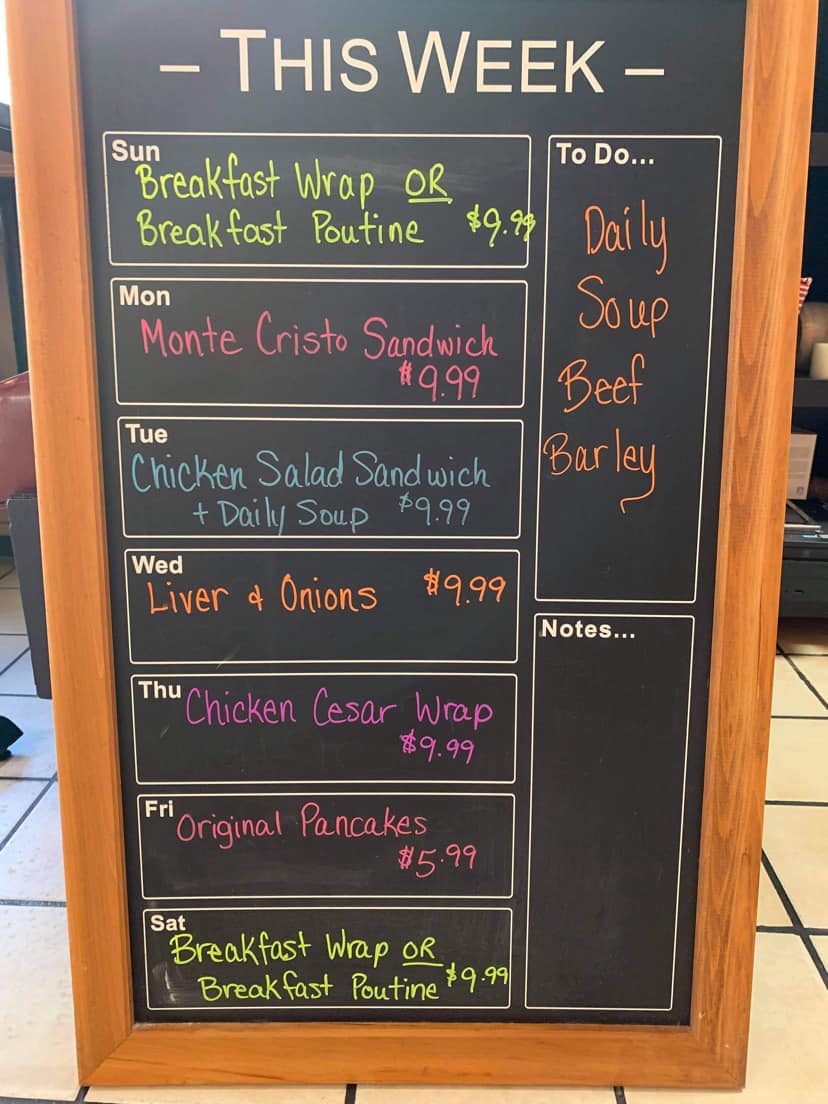 – THIS WEEK –
Sun
Breakfast Wrap OR
Breakfast Poutine $9.99
Mon
Monte Cristo Sandwich
$9.99
Tue
Chicken Salad Sandwich
+ Daily Soup $9.99
Wed
Liver & Onions $9.99
Thu
Chicken Cesar Wrap
$9.99
Fri
Original Pancakes
$5.99
Sat
Breakfast Wrap OR
Breakfast Poutine $9.99
To Do...
Daily
Soup
Beef
Barley
Notes...